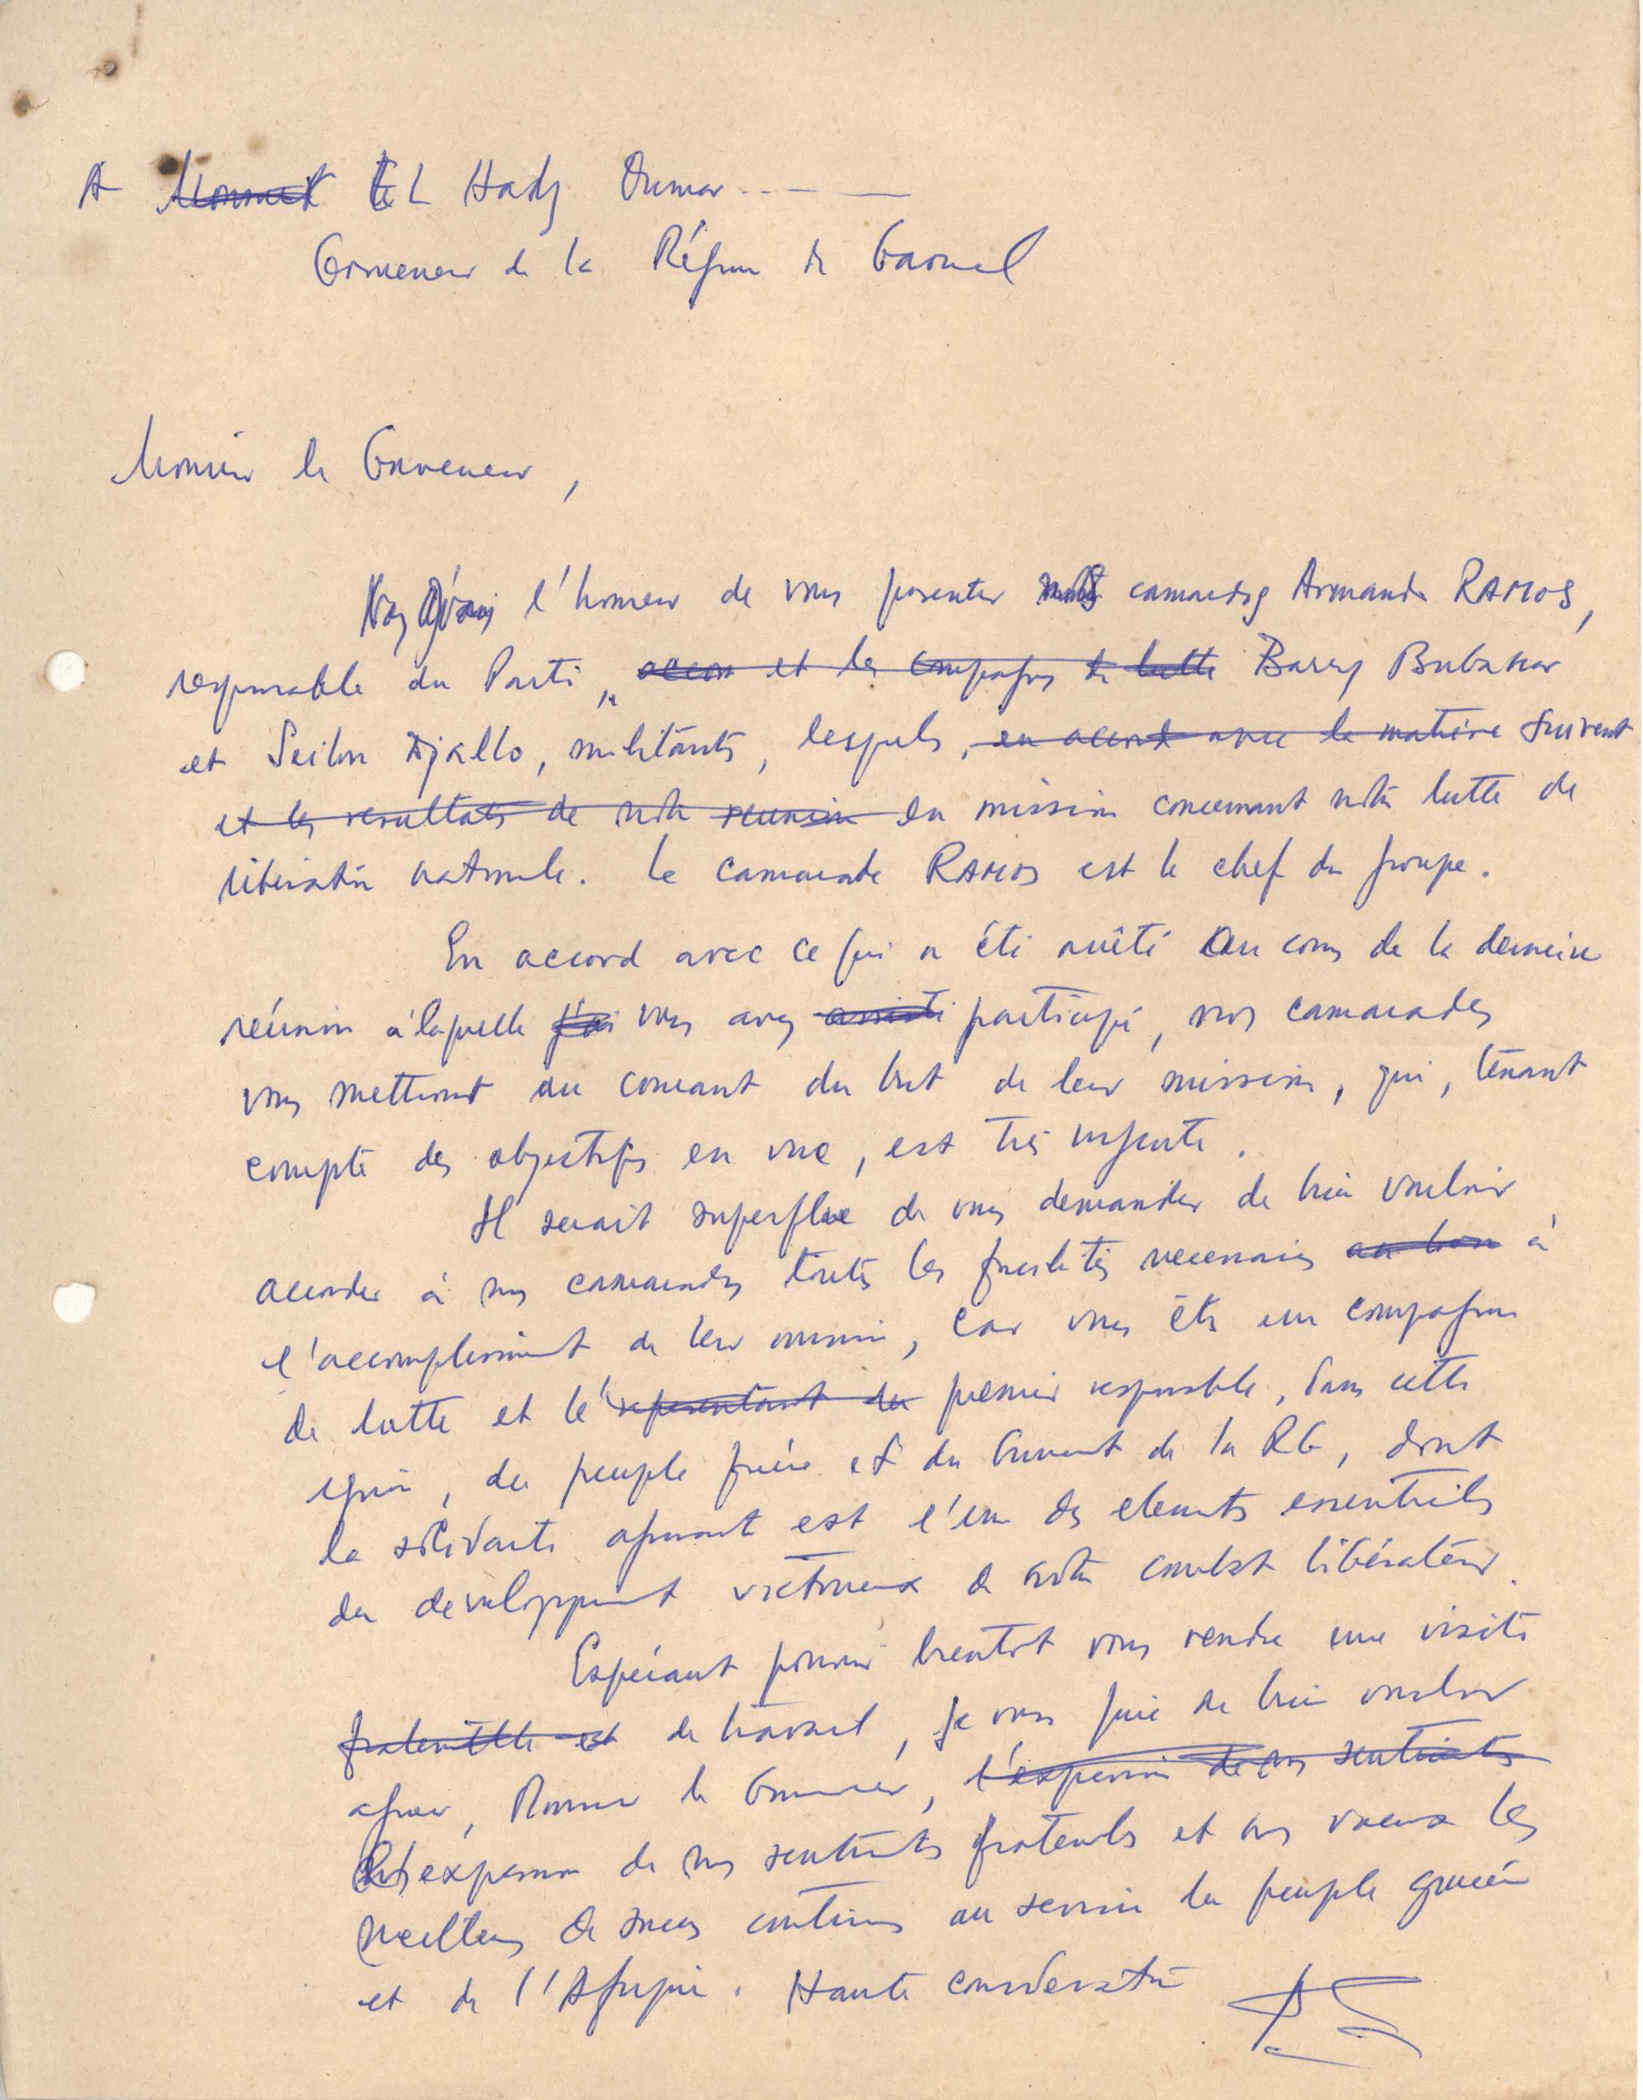 A El Hadj Oumar
Gouverneur de la Région de Gaoual
Monsieur le Gouverneur,
l'honneur de vous presenter camarades Armando RAMOS,
responsable du Parti, accord et les compagnons de lutte Barry Bubakar
et Seilou Djallo, militants, lesquels, en accord avec la matière suivent
et les resultats de notre reunion en mission concernant notre lutte de
libération nationale. Le camarade RAMOS est le chef du groupe.
En accord avec ce qui a été arrêté au cours de la dernière
réunion à laquelle j'ai vous avez assisté participé, nos camarades
vous mettront au courant du but de leur mission, qui, tenant
compte des objectifs en vue, est très urgente.
Il serait superflue de vous demander de bien vouloir
accorder à nos camarades toutes les facilités necessaires au bon à
l'accomplissement de leur mission, car vous êtes un compagnon
de lutte et le représentant du premier responsable, dans cette
région, du peuple frère et du Gouvernement de la RG, dont
la solidarité agissante est l'un des elements essentiels
du developpement victorieux de notre combat libérateur.
Espérant pouvoir bientôt vous rendre une visite
fraternelle et de travail, je vous prie de bien vouloir
agréer, Monsieur le Gouverneur, l'expression de nos sentiments
expression de nos sentiments fraternels et nos voeux les
meilleurs de succès continus au service du peuple guinéen
et de l'Afrique. Haute consideration